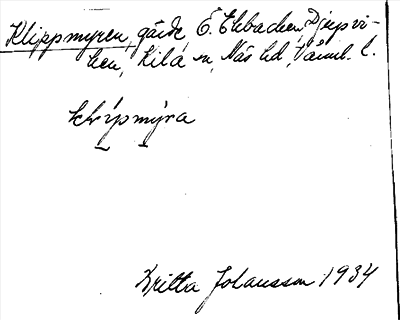 Klippmyren, gärde, Ö. Ekbacken, Djupvi-
ken, Kila sn, Näs hd, Värml. l.
klípmýra
Britta Johansson 1934